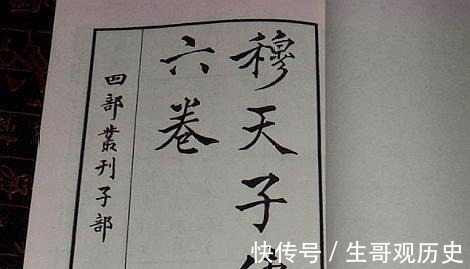 穆天子傳
六卷
四部叢刊子部
快传号／生哥观历史